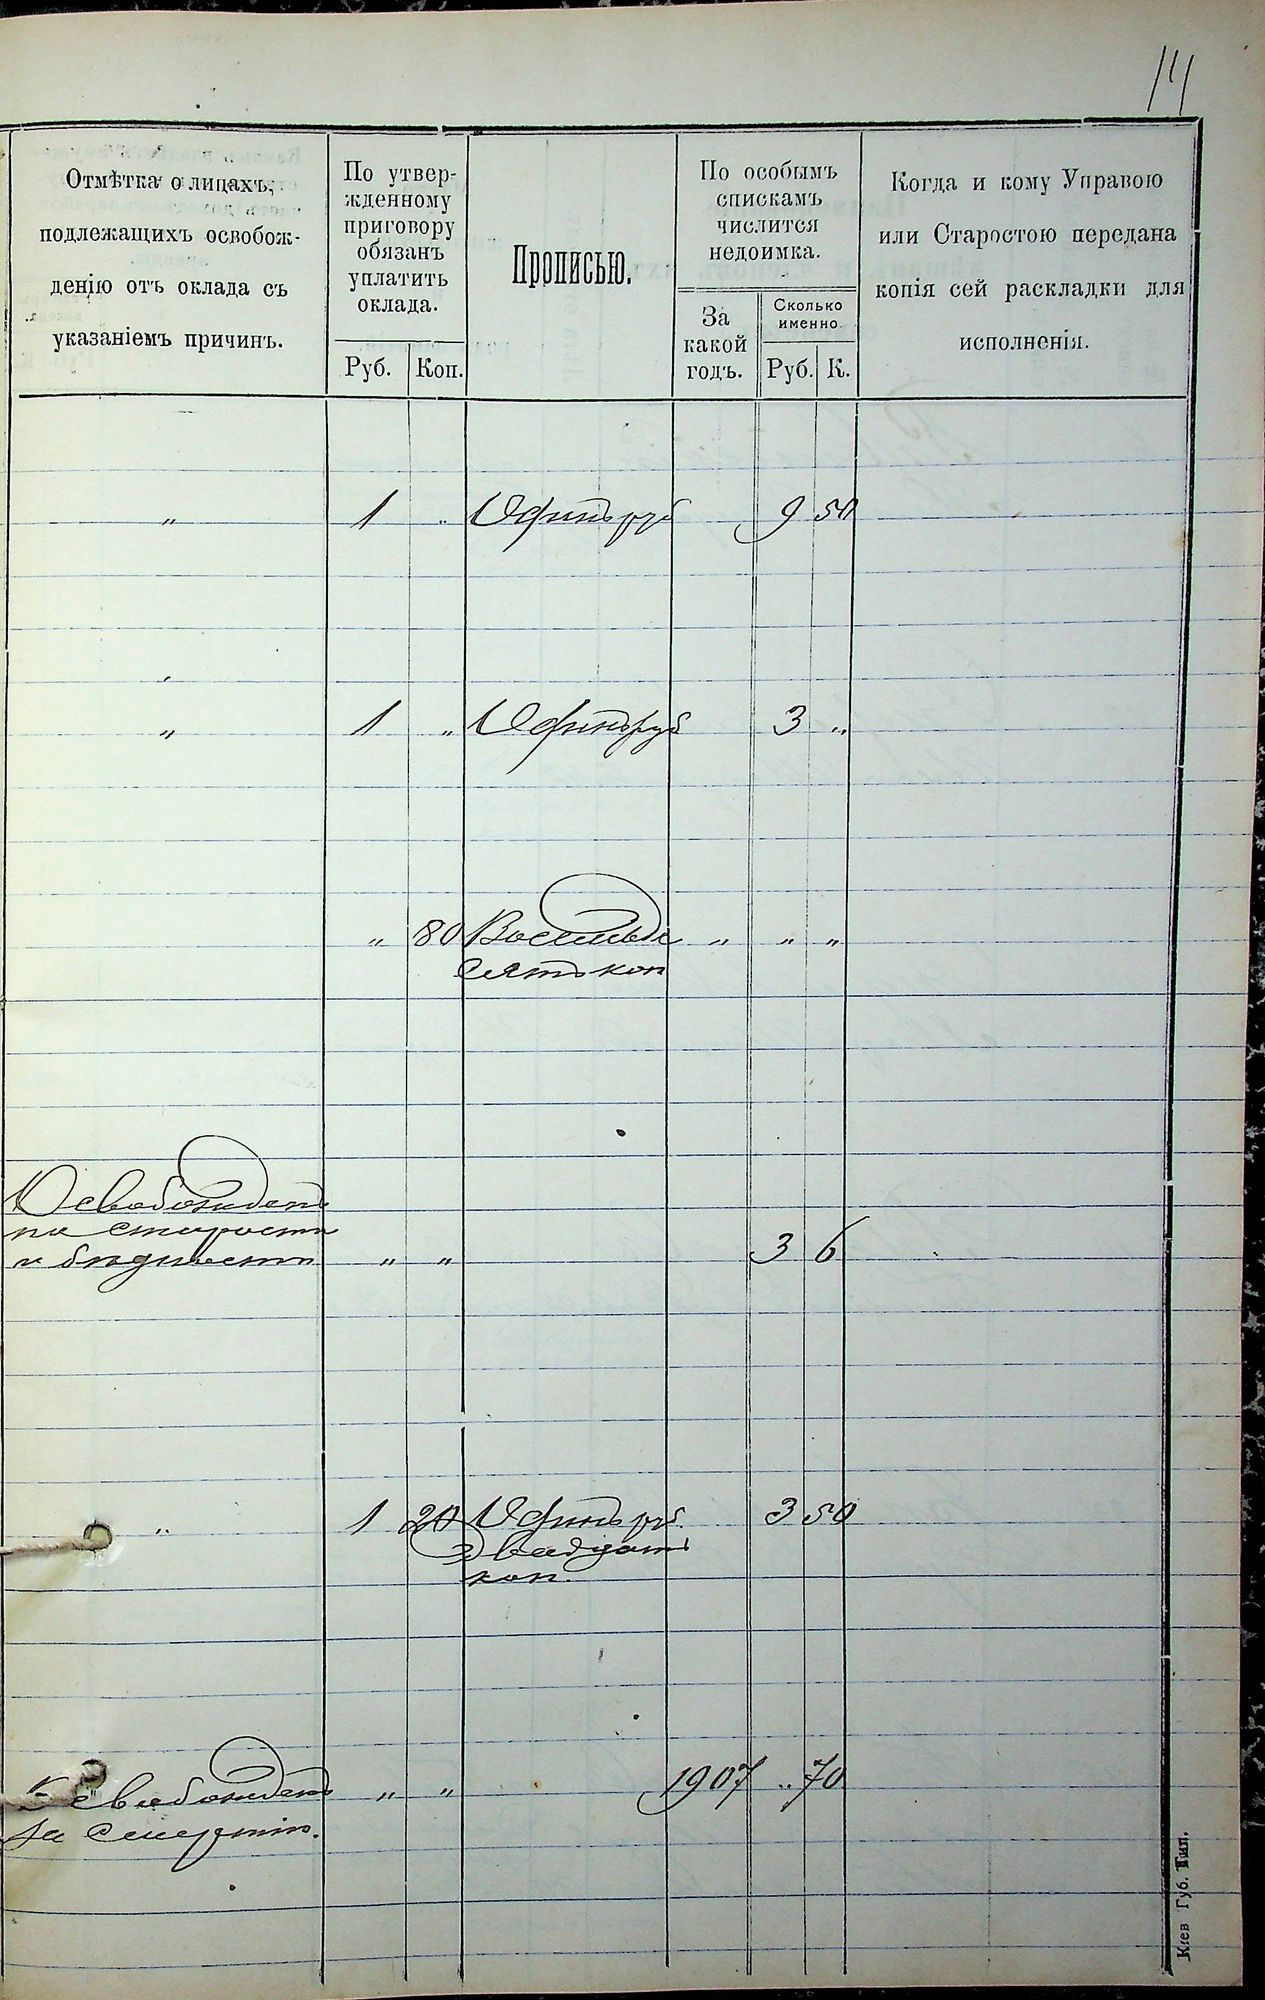 Отмѣтка о лицахъ,
подлежащихъ освобож-
денію отъ оклада съ
указаніемъ причинъ.
По утвер-
жденному
приговору
обязанъ
уплатить
оклада.
Руб. Коп.
Прописью.
По особымъ
спискамъ
числится
недоимка.
За
какой
годъ.
Сколько
именно.
Руб. К.
Когда и кому Управою
или Старостою передана
копія сей раскладки для
исполненія.
" 1 " Одинъ руб 9 50
" 1 " Одинъ руб 3 "
" 80 Восемьде " " "
сятъ коп
Освобожденъ
по старости
и бѣдности " " 3 6
" 1 20 Одинъ руб. 3 50
двадцать
коп.
Освобожденъ " " 1907 " 70
за смертію.
Кіев Губ. Тип.